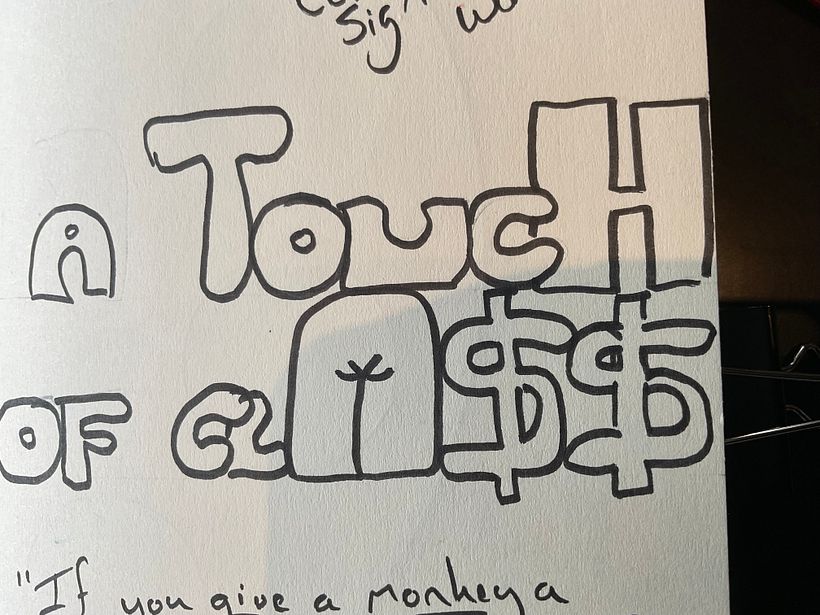 Sig
A TOUCH
OF CLA$$
"If you give a monkey a